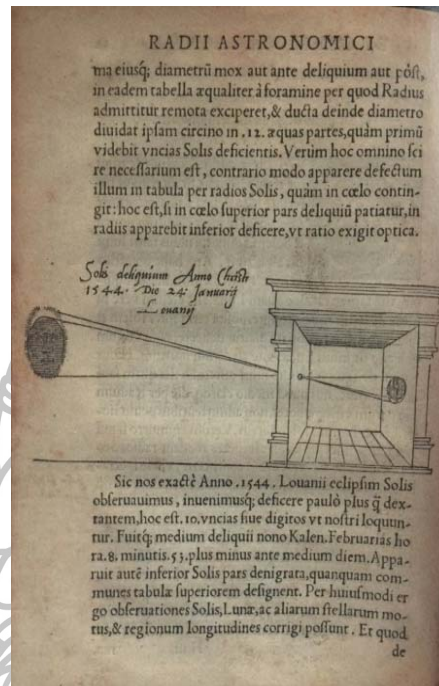 RADII ASTRONOMICI
ma eiusq; diametrũ mox aut ante deliquium aut pòſt,
in eadem tabella æqualiter à foramine per quod Radius
admittitur remota exciperet, & ducta deinde diametro
diuidat ipſam circino in .12. æquas partes, quàm primũ
videbit vncias Solis deficientis. Verùm hoc omnino ſci
re neceſſarium eſt, contrario modo apparere defectum
illum in tabula per radios Solis, quàm in cœlo contin-
git: hoc eſt, ſi in cœlo ſuperior pars deliquiũ patiatur, in
radiis apparebit inferior deficere, vt ratio exigit optica.
Solis deliquium Anno Chriſti
1544. Die 24. Januarij
Louanij
Sic nos exactè Anno .1544. Louanii eclipſim Solis
obſeruauimus, inuenimusq; deficere paulò plus q̃ dex-
tantem, hoc eſt .10. vncias ſiue digitos vt noſtri loquun-
tur. Fuitq; medium deliquii nono Kalen. Februarias ho
ra .8. minutis .53. plus minus ante medium diem. Appa-
ruit autẽ inferior Solis pars denigrata, quanquam com-
munes tabulæ ſuperiorem deſignent. Per huiuſmodi er
go obſeruationes Solis, Lunæ, ac aliarum ſtellarum mo-
tus, & regionum longitudines corrigi poſſunt. Et quod
de